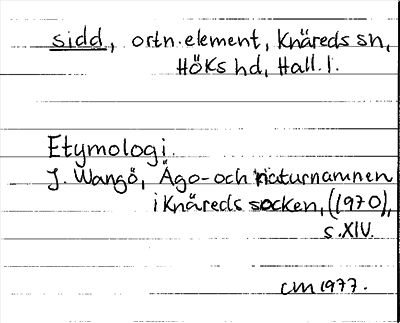 sidd, ortn.element, Knäreds sn,
Höks hd, Hall. l.
Etymologi.
J. Wangö, Ägo- och naturnamnen
i Knäreds socken, (1970),
s. XIV.
cm 1977.